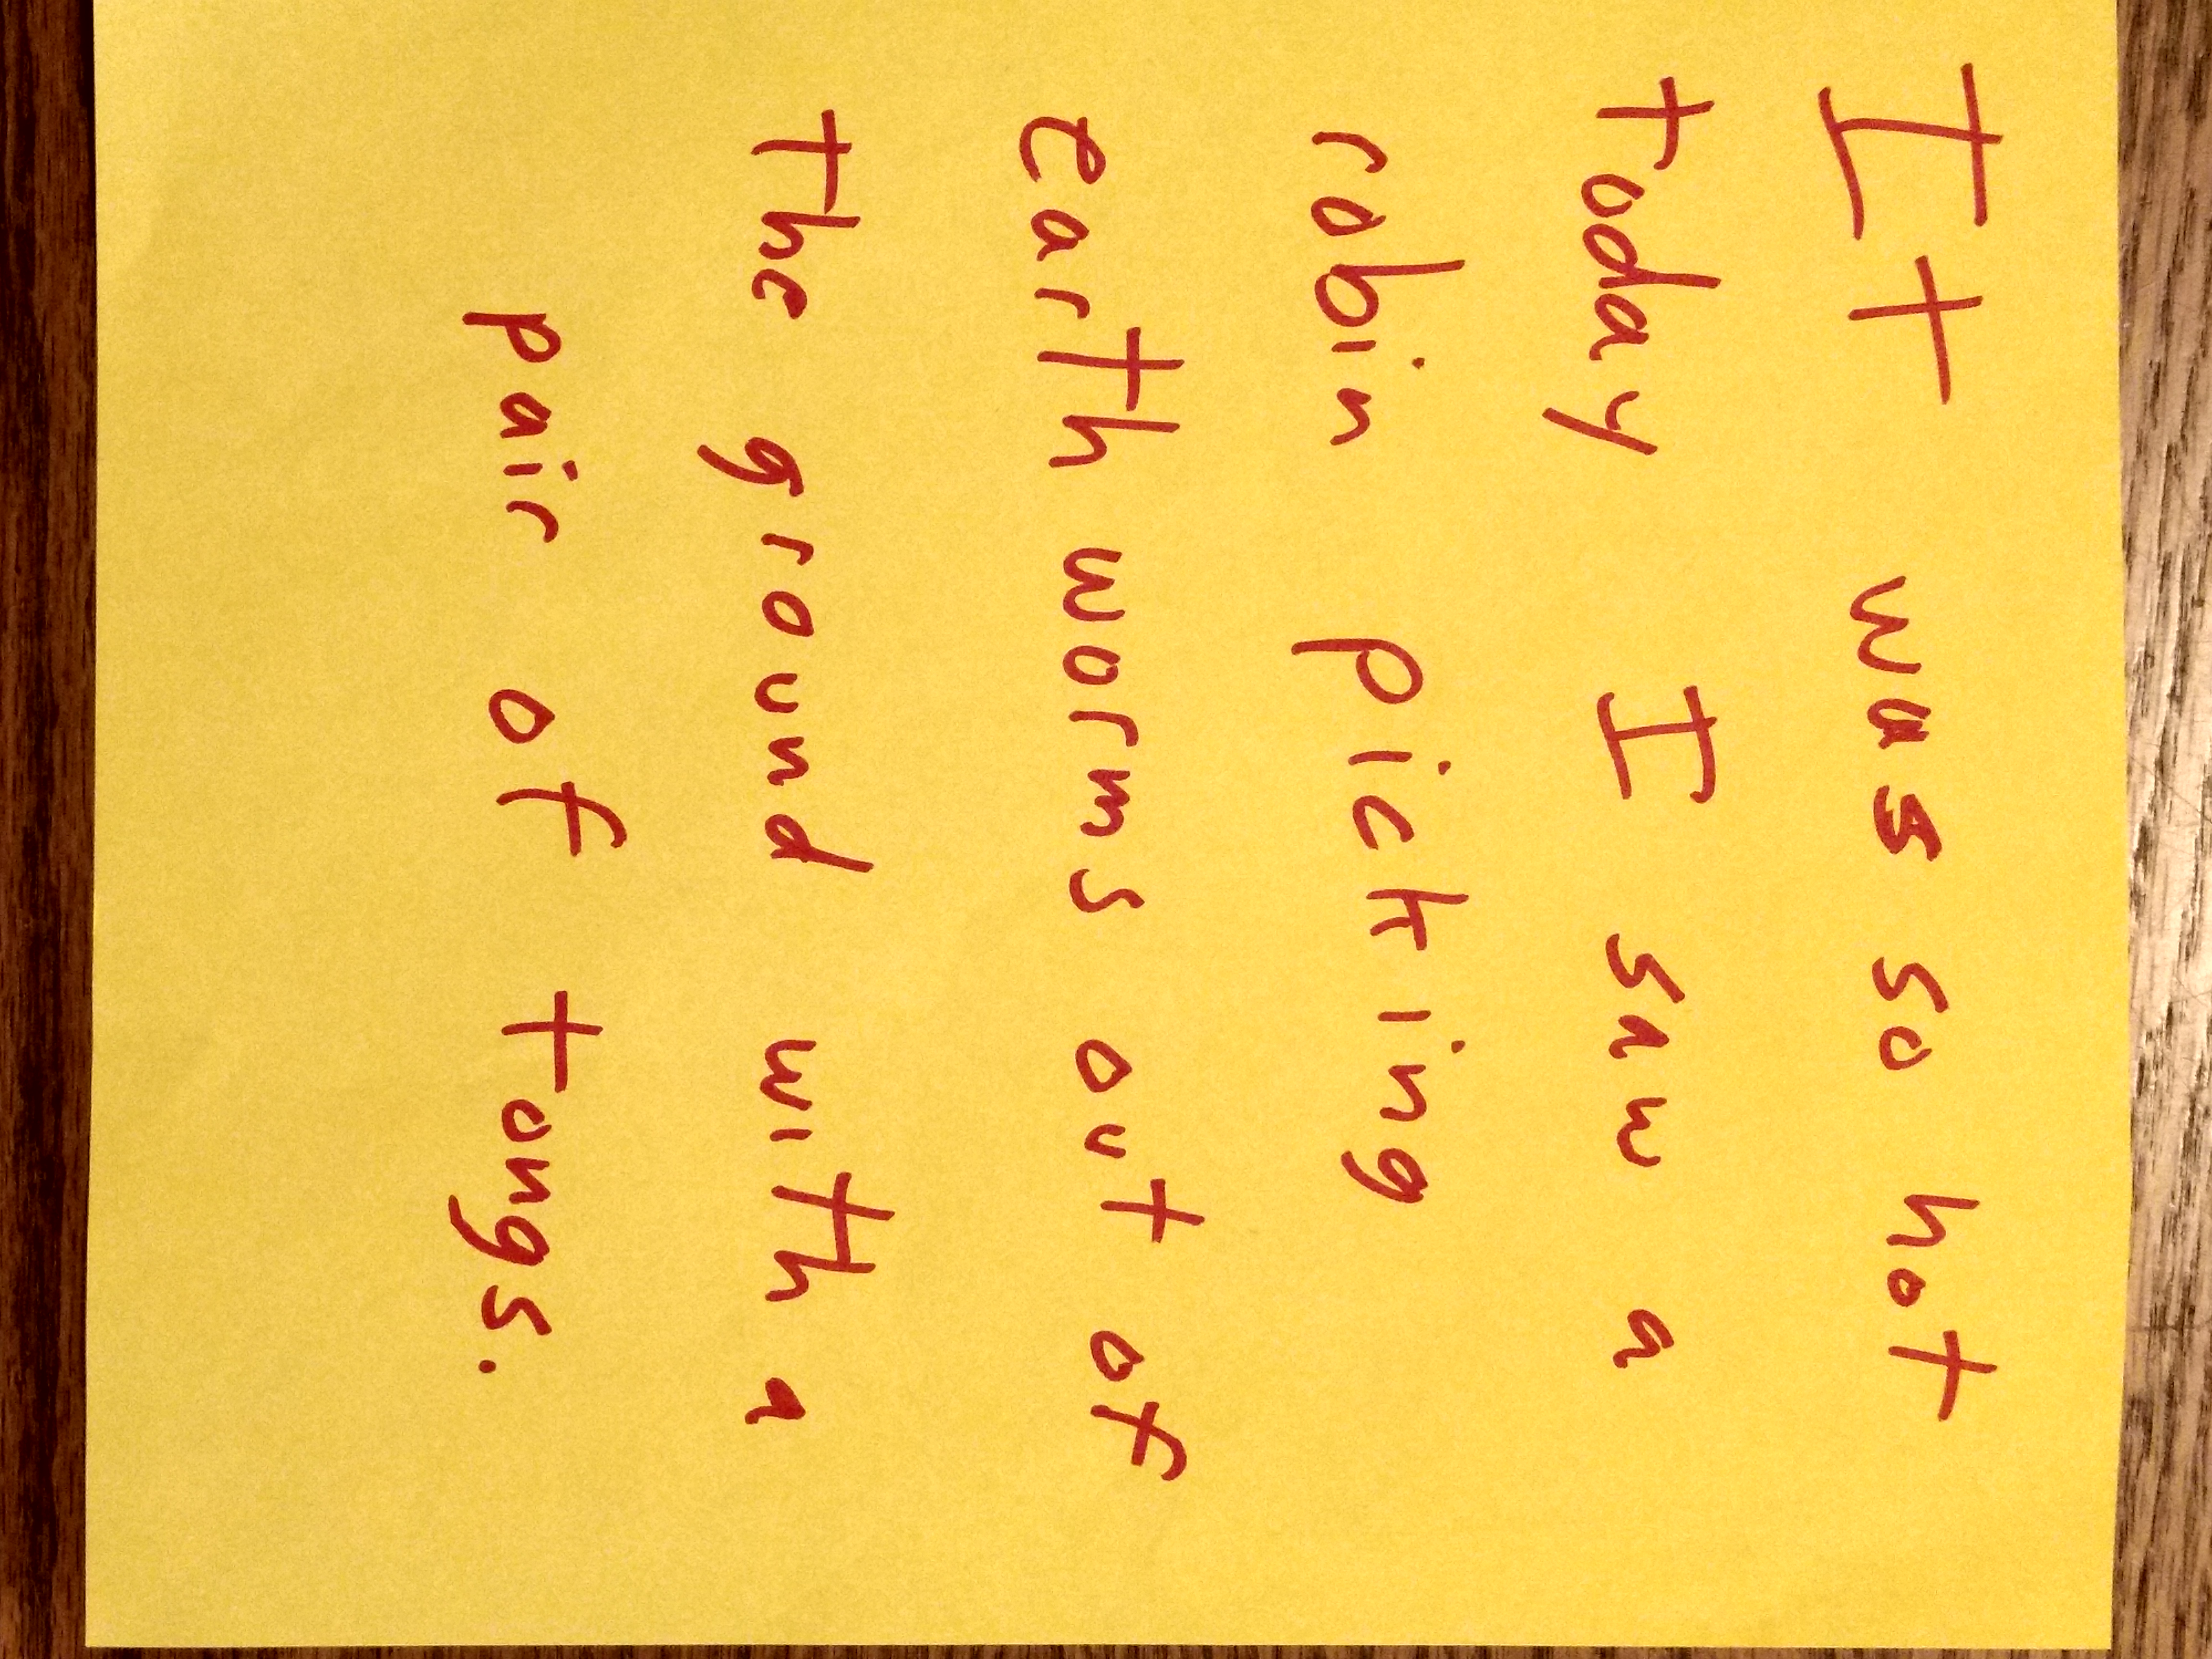 It was so hot
today I saw a
robin picking
earth worms out of
the ground with a
pair of tongs.